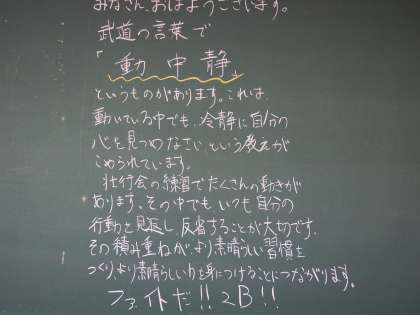 みなさん、おはようございます。
武道の言葉で
「動中静」
というものがあります。これは、
動いている中でも、冷静に自分の
心を見つめなさいという教えが
こめられています。
壮行会の練習でたくさんの動きが
あります。その中でも、いつも自分の
行動を見直し、反省することが大切です。
その積み重ねが、より素晴らしい習慣を
つくり、より素晴らしい力を身につけることにつながります。
ファイトだ!!2B!!